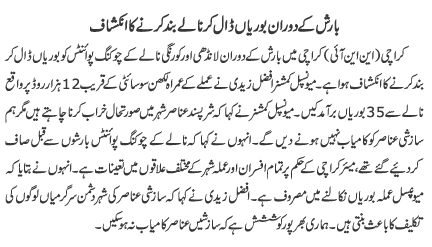 بارش کے دوران بوریاں ڈال کر نالے بند کرنے کا انکشاف
کراچی (این این آئی) کراچی میں بارش کے دوران لانڈھی اور کورنگی نالے کے چوکنگ پوائنٹس کو بوریاں ڈال کر
بند کرنے کا انکشاف ہوا ہے۔ میونسپل کمشنر افضل زیدی نے عملے کے ہمراہ لکھن سوسائٹی کے قریب 12 ہزار روڈ پر واقع
نالے سے 35 بوریاں برآمد کیں۔ میونسپل کمشنر نے کہا کہ شرپسند عناصر شہر میں صورتحال خراب کرنا چاہتے ہیں مگر ہم
سازشی عناصر کو کامیاب نہیں ہونے دیں گے۔ انہوں نے کہا کہ نالے کے چوکنگ پوائنٹس بارشوں سے قبل صاف
کر دیئے گئے تھے، میئر کراچی کے حکم پر تمام افسران اور عملہ شہر کے مختلف علاقوں میں تعینات ہے۔ انہوں نے بتایا کہ
میونسپل عملہ بوریاں نکالنے میں مصروف ہے۔ افضل زیدی نے کہا کہ سازشی عناصر کی شہر دشمن سرگرمیاں لوگوں کی
تکلیف کا باعث بنتی ہیں۔ ہماری بھرپور کوشش ہے کہ سازشیں عناصر کامیاب نہ ہو سکیں۔